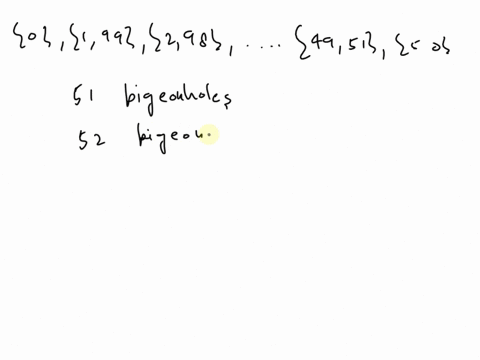 {0}, {1, 99}, {2, 98}, .... {49, 51}, {50}
51 pigeonholes
52 pigeon.